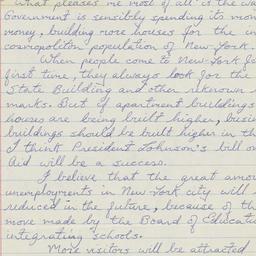 What pleases me most of all is the wa
Government is sensibly spending its mon
money, building more houses for the in
cosmopoliton population of New-York.
When people come to New-York fo
first time, they always look for the
State Building and other reknown
marks. But if apartment buildings
houses are being built higher, busi
buildings should be built higher in th
I think President Johnson's bill on
Aid will be a success.
I believe that the great amou
unemployments in New-York city will
reduced in the future, because of th
move made by the Board of Educati
integrating schools.
More visitors will be attracted